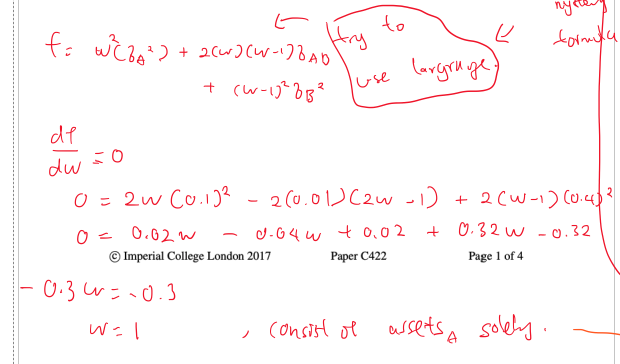 mystery
formula
try to
use largrage.
f = w²(σ_A²) + 2(w)(w-1)σ_AB
+ (w-1)² σ_B²
df/dw = 0
0 = 2w(0.1)² - 2(0.01)(2w-1) + 2(w-1)(0.4)²
0 = 0.02w - 0.04w + 0.02 + 0.32w - 0.32
© Imperial College London 2017 Paper C422 Page 1 of 4
- 0.3w = -0.3
w = 1 , consist of assets_A solely.